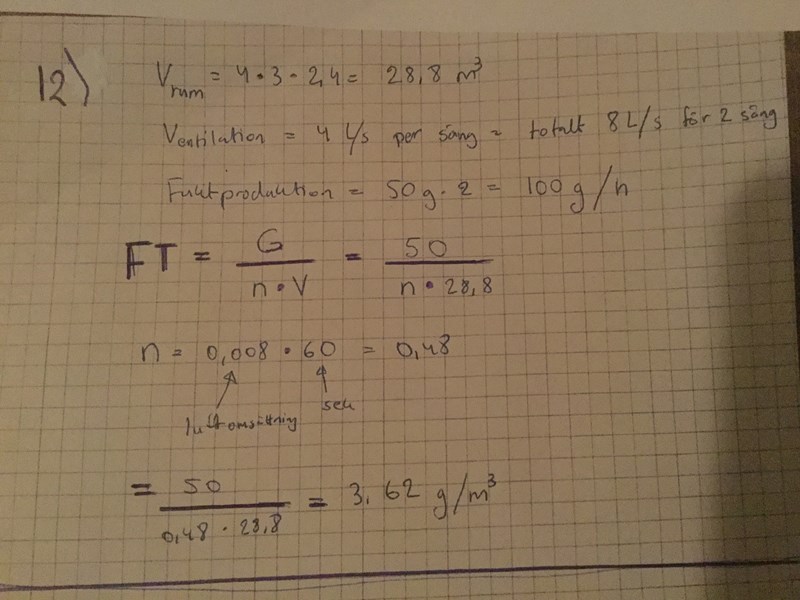 12) Vrum = 4 • 3 • 2,4 = 28,8 m³
Ventilation = 4 L/s per säng = totalt 8 L/s för 2 säng
Fuktproduktion = 50 g • 2 = 100 g/h
FT = G / n • V = 50 / n • 28,8
n = 0,008 • 60 = 0,48
luftomsättning sek
= 50 / 0,48 • 28,8 = 3,62 g/m³